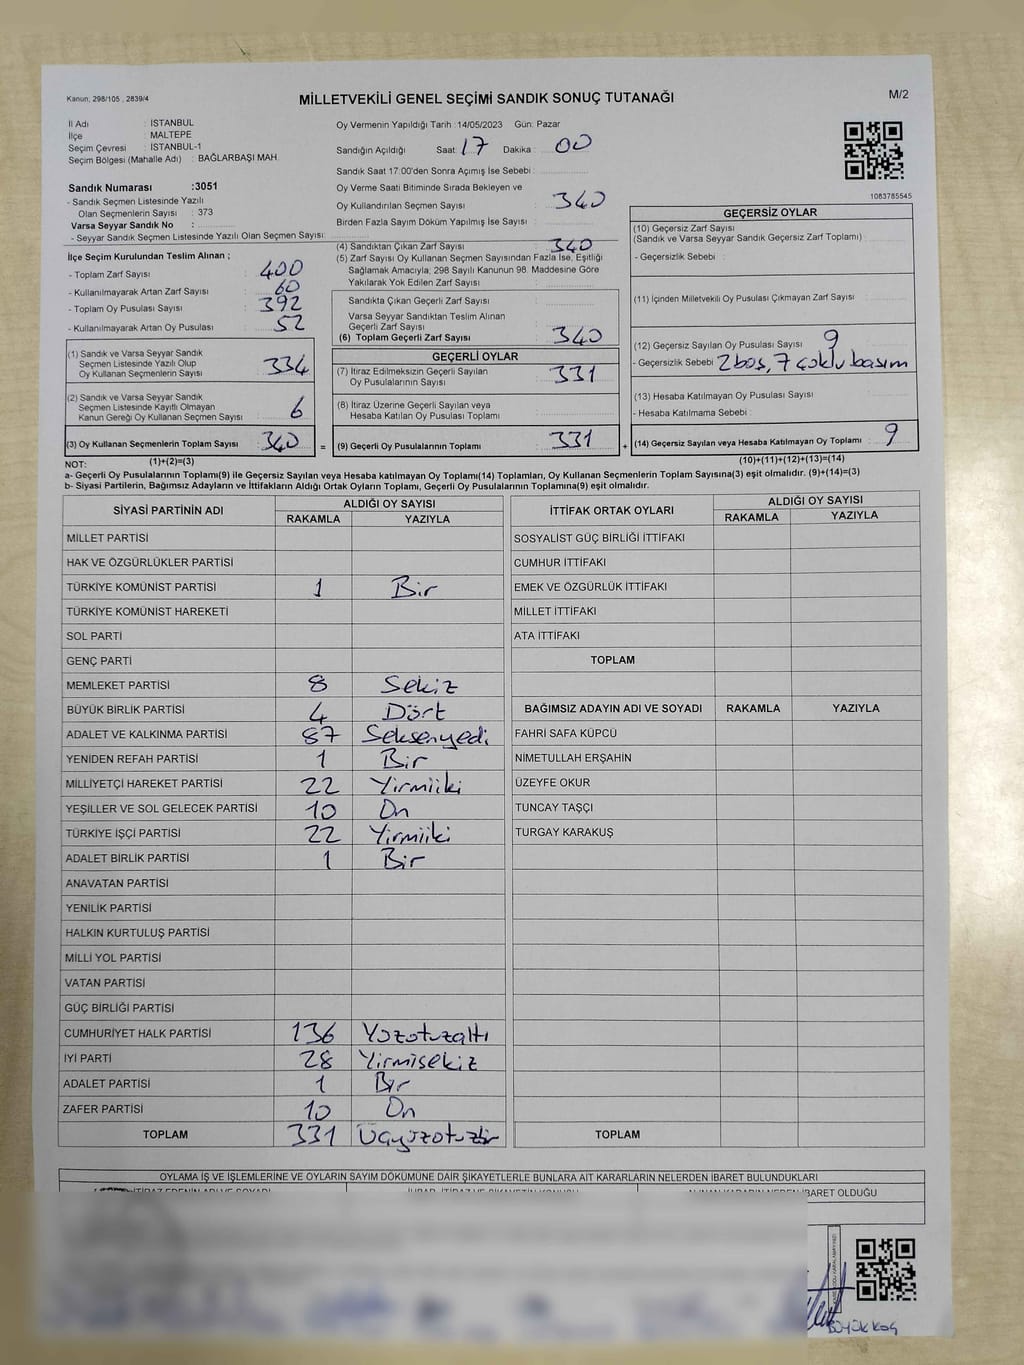 Kanun; 298/105 , 2839/4
MİLLETVEKİLİ GENEL SEÇİMİ SANDIK SONUÇ TUTANAĞI
M/2
İl Adı : İSTANBUL
İlçe : MALTEPE
Seçim Çevresi : İSTANBUL-1
Seçim Bölgesi (Mahalle Adı) : BAĞLARBAŞI MAH.
Sandık Numarası :3051
- Sandık Seçmen Listesinde Yazılı
Olan Seçmenlerin Sayısı : 373
Varsa Seyyar Sandık No :
- Seyyar Sandık Seçmen Listesinde Yazılı Olan Seçmen Sayısı:
Oy Vermenin Yapıldığı Tarih :14/05/2023 Gün: Pazar
Sandığın Açıldığı Saat: 17 Dakika : 00
Sandık Saat 17:00'den Sonra Açımış İse Sebebi :
Oy Verme Saati Bitiminde Sırada Bekleyen ve
Oy Kullandırılan Seçmen Sayısı : 340
Birden Fazla Sayım Döküm Yapılmış İse Sayısı :
1083785545
İlçe Seçim Kurulundan Teslim Alınan ;
- Toplam Zarf Sayısı : 400
- Kullanılmayarak Artan Zarf Sayısı : 60
- Toplam Oy Pusulası Sayısı : 392
- Kullanılmayarak Artan Oy Pusulası : 52
(1) Sandık ve Varsa Seyyar Sandık
Seçmen Listesinde Yazılı Olup
Oy Kullanan Seçmenlerin Sayısı : 334
(2) Sandık ve Varsa Seyyar Sandık
Seçmen Listesinde Kayıtlı Olmayan
Kanun Gereği Oy Kullanan Seçmen Sayısı : 6
(3) Oy Kullanan Seçmenlerin Toplam Sayısı : 340 =
(1)+(2)=(3)
(4) Sandıktan Çıkan Zarf Sayısı : 340
(5) Zarf Sayısı Oy Kullanan Seçmen Sayısından Fazla İse, Eşitliği
Sağlamak Amacıyla; 298 Sayılı Kanunun 98. Maddesine Göre
Yakılarak Yok Edilen Zarf Sayısı :
Sandıkta Çıkan Geçerli Zarf Sayısı :
Varsa Seyyar Sandıktan Teslim Alınan
Geçerli Zarf Sayısı :
(6) Toplam Geçerli Zarf Sayısı : 340
GEÇERLİ OYLAR
(7) İtiraz Edilmeksizin Geçerli Sayılan
Oy Pusulalarının Sayısı : 331
(8) İtiraz Üzerine Geçerli Sayılan veya
Hesaba Katılan Oy Pusulası Toplamı :
(9) Geçerli Oy Pusulalarının Toplamı : 331 +
GEÇERSİZ OYLAR
(10) Geçersiz Zarf Sayısı
(Sandık ve Varsa Seyyar Sandık Geçersiz Zarf Toplamı) :
- Geçersizlik Sebebi :
(11) İçinden Milletvekili Oy Pusulası Çıkmayan Zarf Sayısı :
(12) Geçersiz Sayılan Oy Pusulası Sayısı : 9
- Geçersizlik Sebebi : 2 boş, 7 çoklu basım
(13) Hesaba Katılmayan Oy Pusulası Sayısı :
- Hesaba Katılmama Sebebi :
(14) Geçersiz Sayılan veya Hesaba Katılmayan Oy Toplamı : 9
(10)+(11)+(12)+(13)=(14)
NOT:
a- Geçerli Oy Pusulalarının Toplamı(9) ile Geçersiz Sayılan veya Hesaba katılmayan Oy Toplamı(14) Toplamları, Oy Kullanan Seçmenlerin Toplam Sayısına(3) eşit olmalıdır. (9)+(14)=(3)
b- Siyasi Partilerin, Bağımsız Adayların ve İttifakların Aldığı Ortak Oyların Toplamı, Geçerli Oy Pusulalarının Toplamına(9) eşit olmalıdır.
SİYASİ PARTİNİN ADI ALDIĞI OY SAYISI
RAKAMLA YAZIYLA
MİLLET PARTİSİ
HAK VE ÖZGÜRLÜKLER PARTİSİ
TÜRKİYE KOMÜNİST PARTİSİ 1 Bir
TÜRKİYE KOMÜNİST HAREKETİ
SOL PARTİ
GENÇ PARTİ
MEMLEKET PARTİSİ 8 Sekiz
BÜYÜK BİRLİK PARTİSİ 4 Dört
ADALET VE KALKINMA PARTİSİ 87 Seksenyedi
YENİDEN REFAH PARTİSİ 1 Bir
MİLLİYETÇİ HAREKET PARTİSİ 22 Yirmiiki
YEŞİLLER VE SOL GELECEK PARTİSİ 10 On
TÜRKİYE İŞÇİ PARTİSİ 22 Yirmiiki
ADALET BİRLİK PARTİSİ 1 Bir
ANAVATAN PARTİSİ
YENİLİK PARTİSİ
HALKIN KURTULUŞ PARTİSİ
MİLLİ YOL PARTİSİ
VATAN PARTİSİ
GÜÇ BİRLİĞİ PARTİSİ
CUMHURİYET HALK PARTİSİ 136 Yüzotuzaltı
İYİ PARTİ 28 Yirmisekiz
ADALET PARTİSİ 1 Bir
ZAFER PARTİSİ 10 On
TOPLAM 331 Üçyüzotuzbir
İTTİFAK ORTAK OYLARI ALDIĞI OY SAYISI
RAKAMLA YAZIYLA
SOSYALİST GÜÇ BİRLİĞİ İTTİFAKI
CUMHUR İTTİFAKI
EMEK VE ÖZGÜRLÜK İTTİFAKI
MİLLET İTTİFAKI
ATA İTTİFAKI
TOPLAM
BAĞIMSIZ ADAYIN ADI VE SOYADI RAKAMLA YAZIYLA
FAHRİ SAFA KÜPCÜ
NİMETULLAH ERŞAHİN
ÜZEYFE OKUR
TUNCAY TAŞÇI
TURGAY KARAKUŞ
TOPLAM
OYLAMA İŞ VE İŞLEMLERİNE VE OYLARIN SAYIM DÖKÜMÜNE DAİR ŞİKAYETLERLE BUNLARA AİT KARARLARIN NELERDEN İBARET BULUNDUKLARI
İBARET OLDUĞU